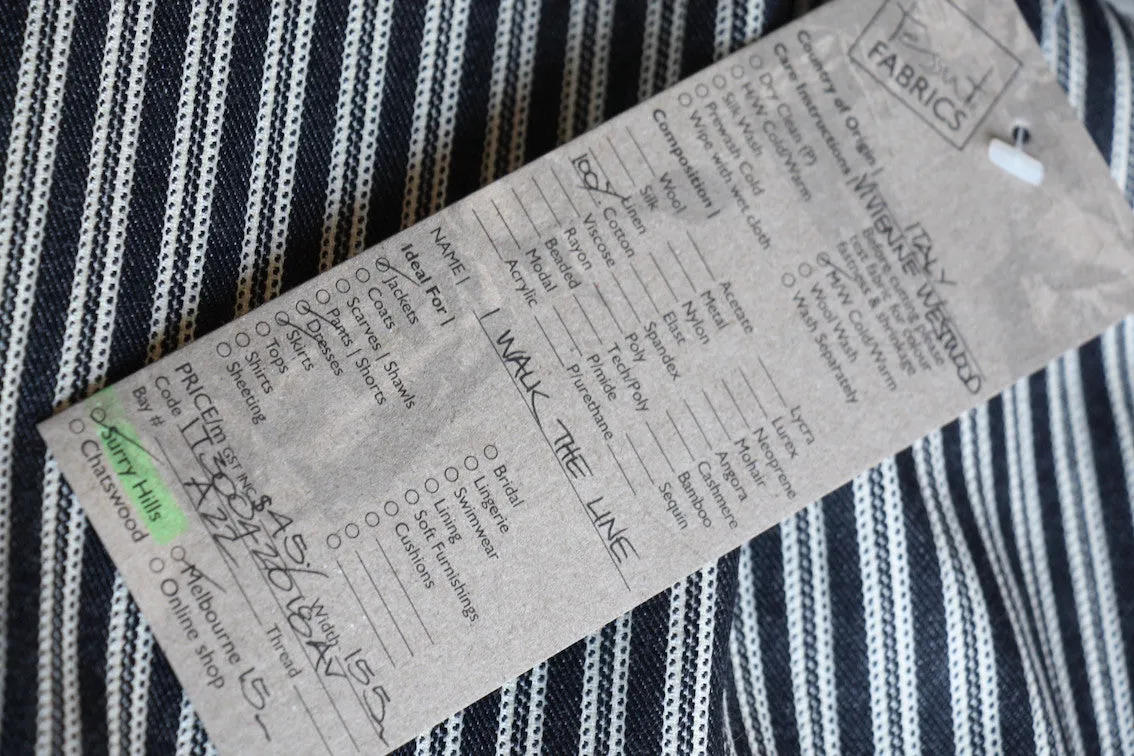 Tessuti
FABRICS
Country of Origin | ITALY
VIVIENNE WESTWOOD
Care Instructions | Before cutting please
test fabric for colour
fastness & shrinkage
Dry Clean (P)
H/W Cold/Warm
Silk Wash
Prewash Cold
Wipe with wet cloth
M/W Cold/Warm
Wool Wash
Wash Separately
Composition |
Wool
Silk
Linen
100% Cotton
Viscose
Rayon
Beaded
Modal
Acrylic
Acetate
Metal
Nylon
Elast
Spandex
Poly
Tech/Poly
P/mide
P/urethane
Lycra
Lurex
Neoprene
Mohair
Angora
Cashmere
Bamboo
Sequin
NAME | I WALK THE LINE
Ideal For |
Jackets
Coats
Scarves | Shawls
Pants | Shorts
Dresses
Skirts
Tops
Shirts
Sheeting
Bridal
Lingerie
Swimwear
Lining
Soft Furnishings
Cushions
PRICE/m GST INC $45 Width 155
Code
Bay # A22 Thread
Surry Hills
Chatswood
Melbourne 15
Online shop